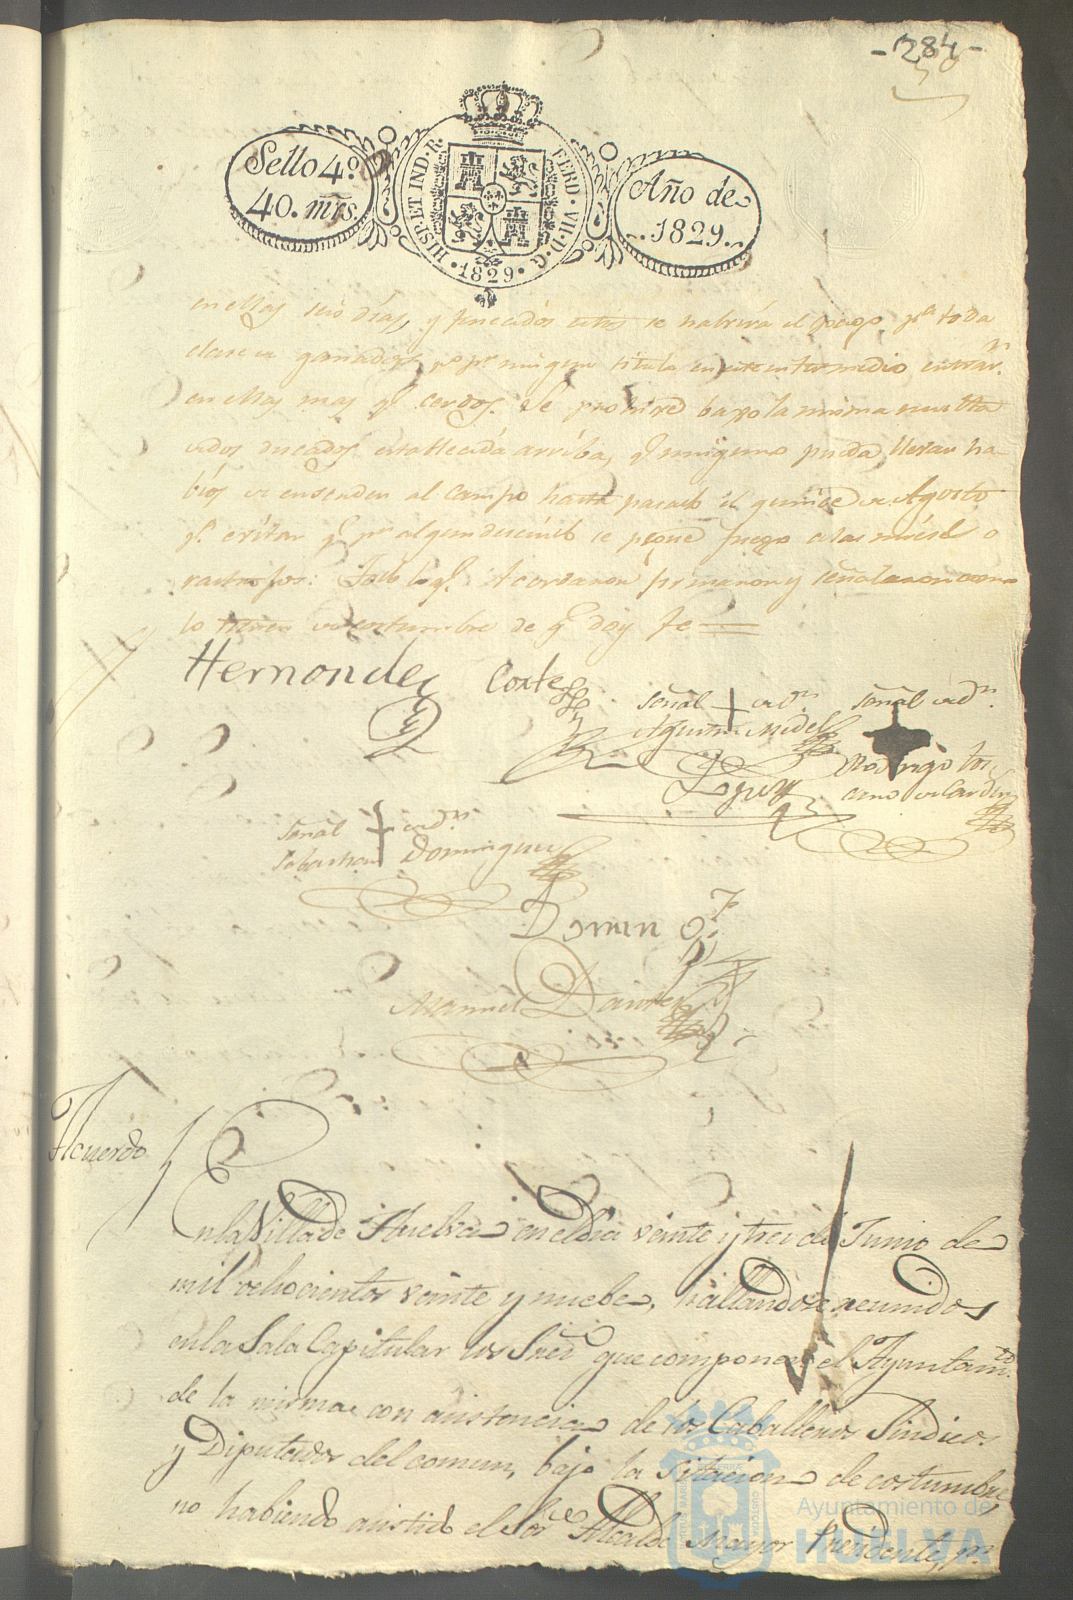 -284-
Sello 4º.
40. mrs.
HISP. ET IND. R.
FERD. VII. D. G.
·1829·
Año de
1829.
en ellas seis días, y pasados estos se habrirá el pago pª toda
clase de ganados, pº pr ningun titulo en este intermedio entrarn.
en ellas mas ql. cerdos. Se prohive baxo la misma multa
de dos ducados establecida arriba, ql. ninguno pueda llevar ha-
bios de ensender al campo hasta pasado el quince de Agosto
pª. evitar ql. pr algun descuido se pegue fuego a las mieses o
rastrojos: Todo lo ql. Acordaron firmaron y señalaron como
lo tienen de costumbre de ql. doy fe
Hernandez
Cortes
señal + de Dn.
Agustin Midel
señal de Dn.
Rodrigo
señal + de Dn.
Sebastian Dominguez
Domin
Manuel
Acuerdo
En la Villa de Huelva en el dia veinte y tres de Junio de
mil ochocientos veinte y nuebe, hallandose reunidos
en la Sala Capitular los Sres. que componen el Ayuntamto.
de la misma con asistencia de los Caballeros Sindicos
y Diputados del comun, bajo la sitacion de costumbre
no habiendo asistido el Sor. Alcalde mayor Presidente, pr.
Ayuntamiento de
HUELVA